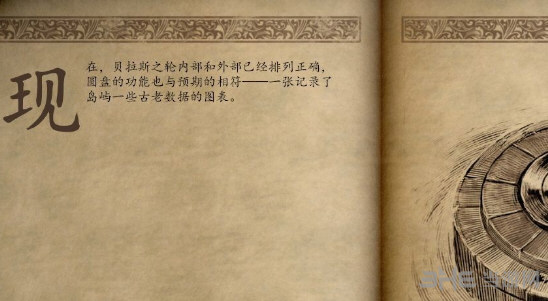 现
在，贝拉斯之轮内部和外部已经排列正确，
圆盘的功能也与预期的相符——一张记录了
岛屿一些古老数据的图表。